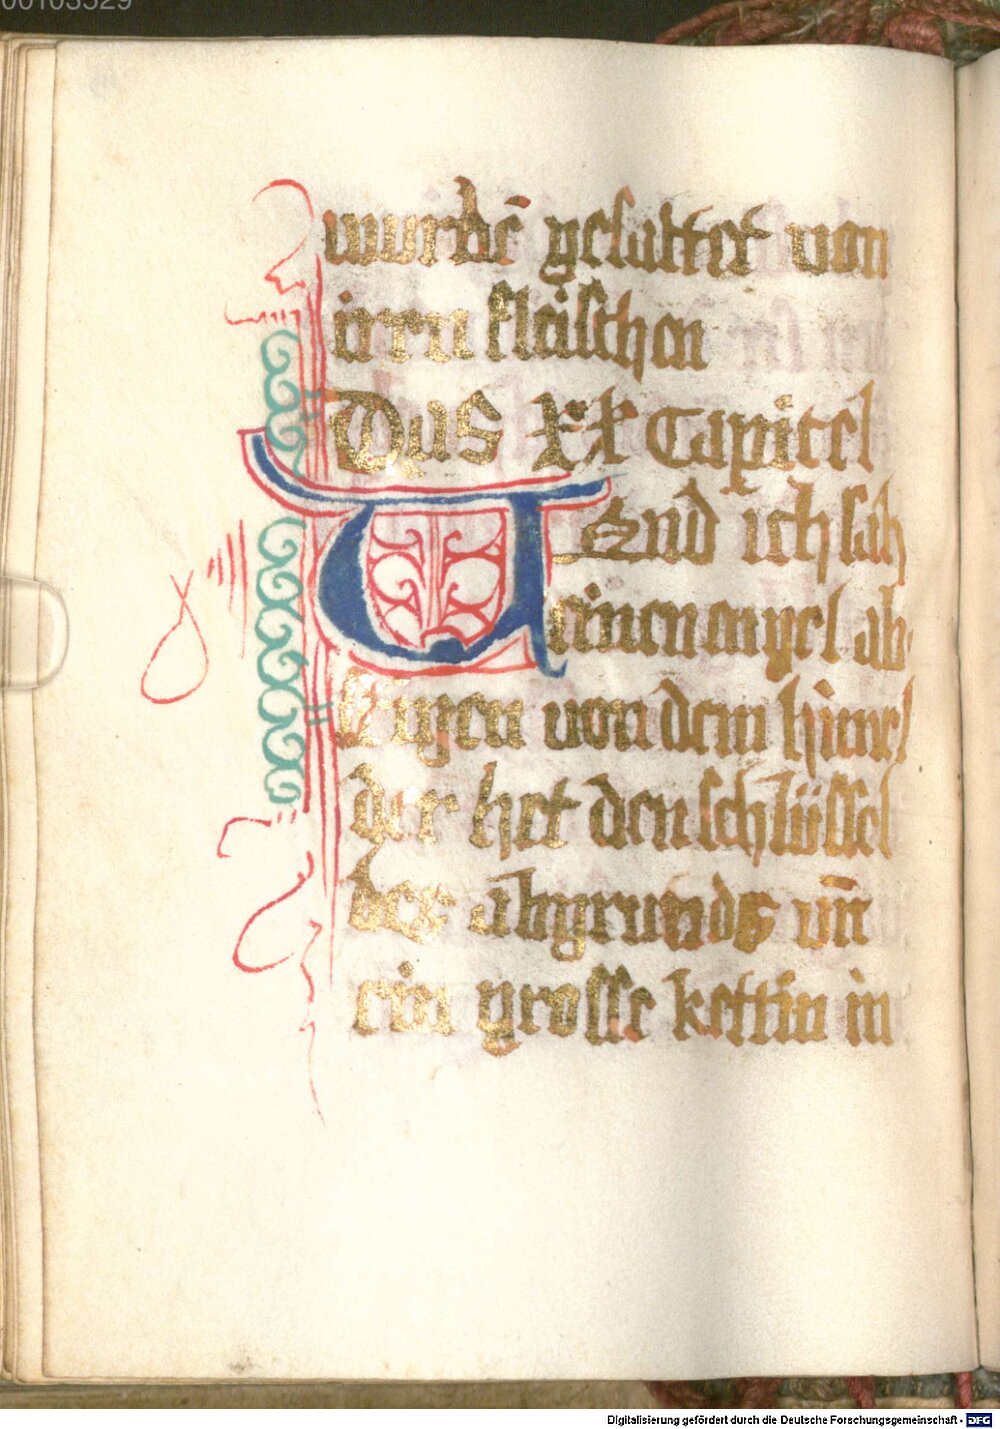 00103529
wurdē gesattet von
irrn fleischen
Das XX Capitel
Vnd ich sah
einen engel ab
stigen von dem himel
der het den schlüssel
des abgrunds vn̄
ein grosse kettin in
Digitalisierung gefördert durch die Deutsche Forschungsgemeinschaft - DFG